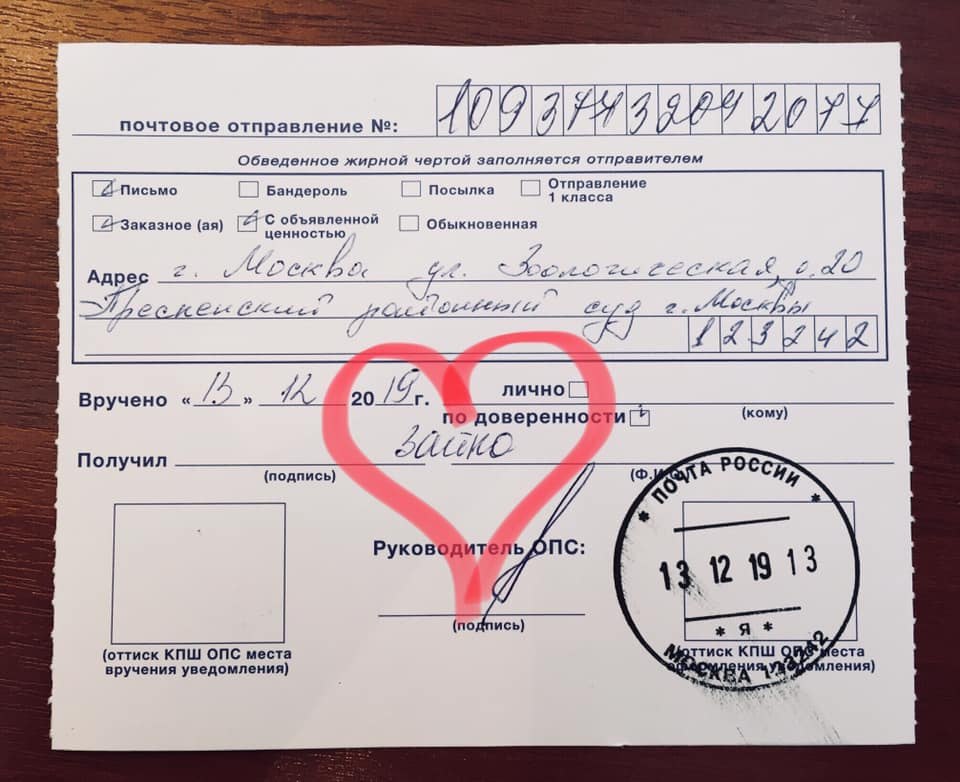 почтовое отправление №: 10937732042077
Обведенное жирной чертой заполняется отправителем
Письмо Бандероль Посылка Отправление 1 класса
Заказное (ая) С объявленной ценностью Обыкновенная
Адрес г. Москва ул. Зоологическая, д. 20
Пресненский районный суд г. Москвы
123242
Вручено « 13 » 12 2019 г. лично
по доверенности (кому)
Получил Зайко
(подпись) (Ф.И.О.)
Руководитель ОПС:
(подпись)
(оттиск КПШ ОПС места вручения уведомления)
(оттиск КПШ ОПС места оформления уведомления)
* ПОЧТА РОССИИ *
13 12 19 13
* Я *
МОСКВА 123242